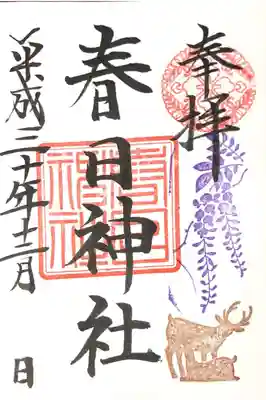 奉拝
春日神社
平成三十年十二月 日